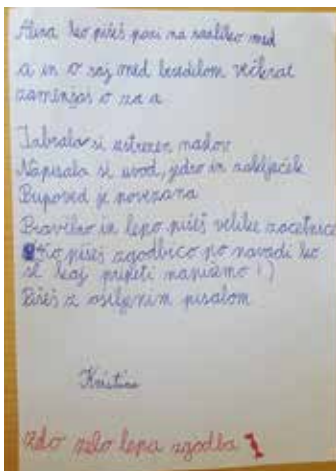 ko pišeš pazi na razliko med
a in o saj med besedilom večkrat
zamenjaš o za a
Izbrala si ustrezen naslov
Napisala si uvod, jedro in zaključek
Pripoved je povezana
Pravilno in lepo pišeš velike začetnice
Ko pišeš zgodbico po navadi ko
se kaj pripeti napišemo !)
Pišeš z ošiljenim pisalom
Kristina
zelo zelo lepa zgodba